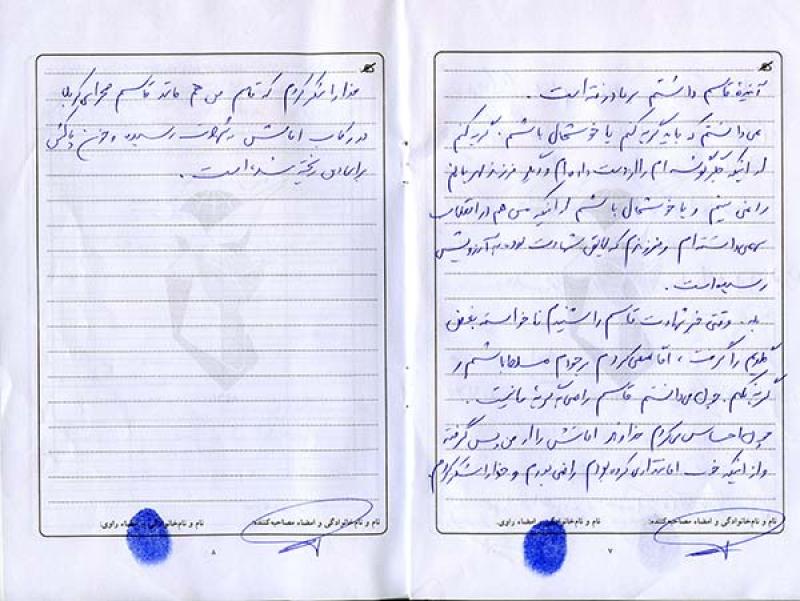 آنچه قاسم داشتم بر باد رفته است.
نمی‌دانستم که باید گریه کنم یا خوشحال باشم. گریه کنم
از اینکه جگرگوشه ام را از دست داده ام و دیگر فرزند
را نمی بینم و یا خوشحال باشم از اینکه من هم در انقلاب
سهمی داشته ام و فرزندم که لایق شهادت بوده به آرزویش
رسیده است.
وقتی خبر شهادت قاسم را شنیدم ناخواسته بغض
گلویم را گرفت، اما سعی کردم بر خودم مسلط باشم و
گریه نکنم. چون می دانستم قاسم راضی به گریه ما نیست.
چون احساس می کردم خداوند امانتش را از من پس گرفته
و از اینکه خوب امانتداری کرده بودم راضی بودم و خدا را شکر کردم.
نام و نام‌خانوادگی و امضاء مصاحبه‌کننده: نام و نام‌خانوادگی و امضاء راوی:
۷
خدا را شکر کردم که قاسم من هم مانند قاسم صحرای کربلا
در رکاب امامش به شهادت رسیده و خون پاکش
برای دین ریخته شده است.
نام و نام‌خانوادگی و امضاء مصاحبه‌کننده: نام و نام‌خانوادگی و امضاء راوی:
۸